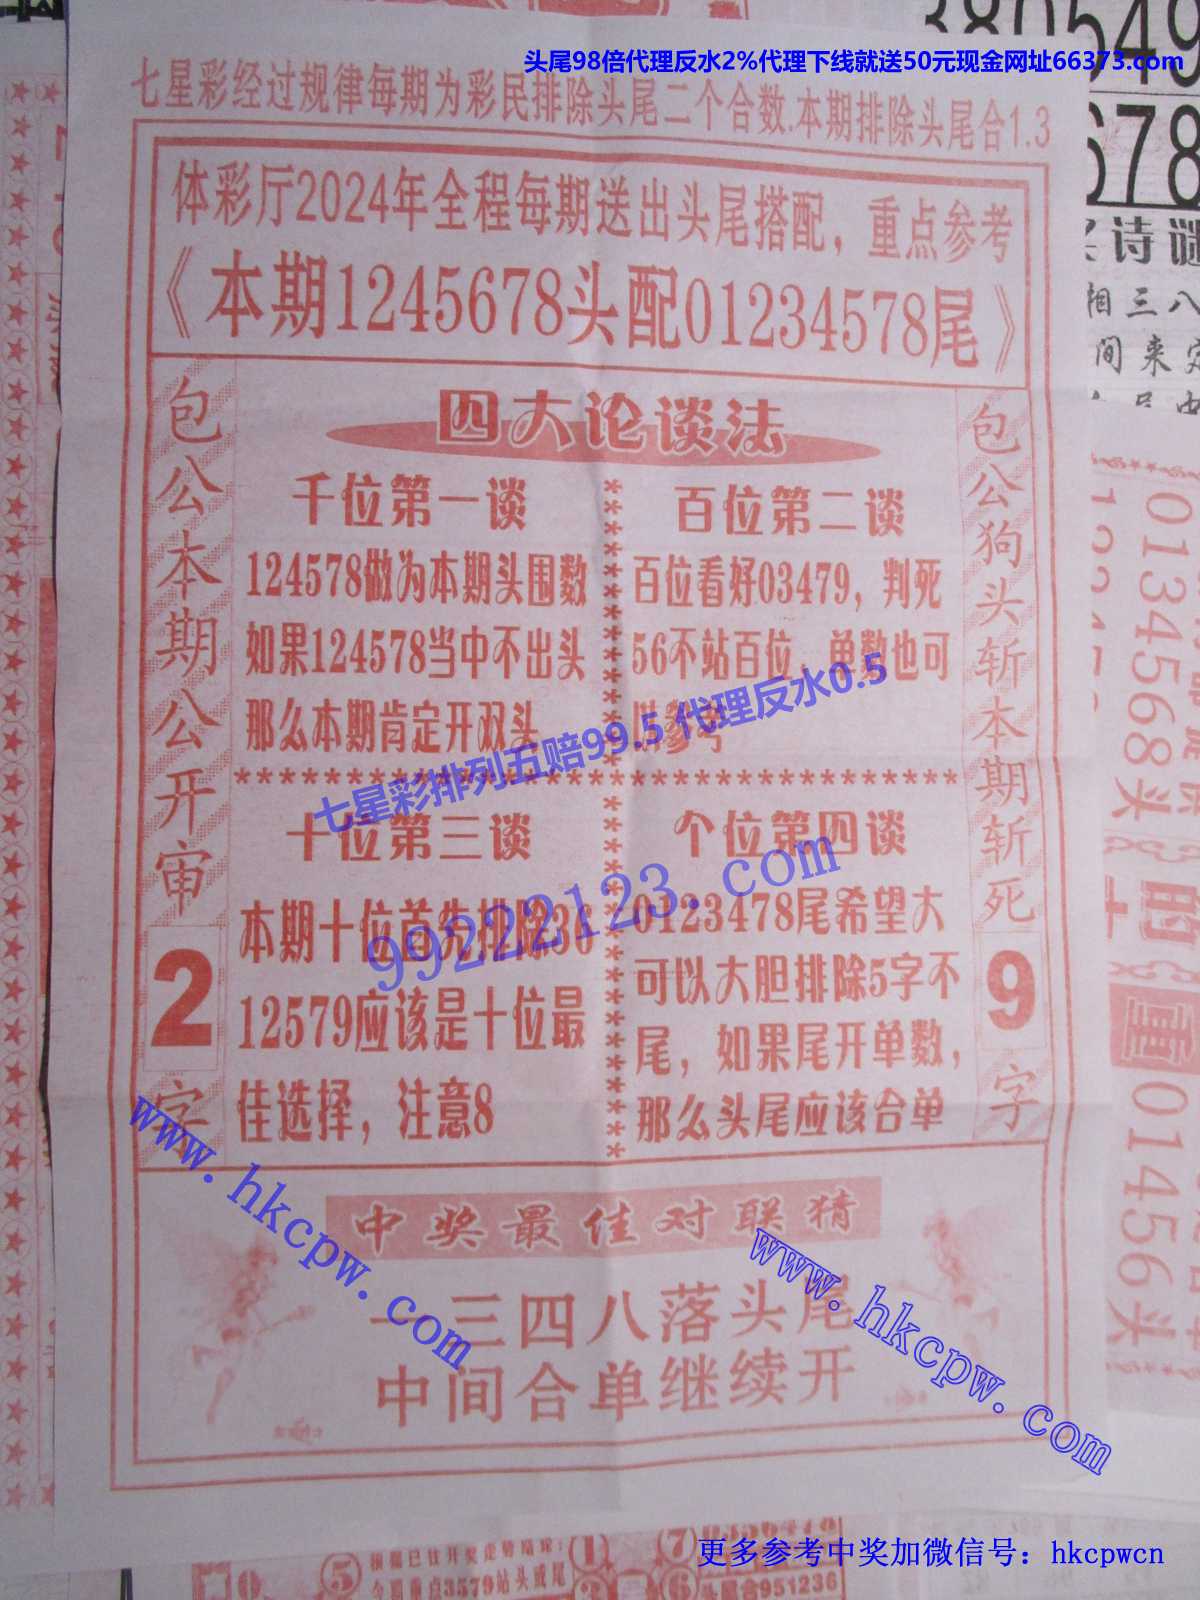 头尾98倍代理反水2%代理下线就送50元现金网址66373.com
七星彩经过规律每期为彩民排除头尾二个合数.本期排除头尾合1.3
体彩厅2024年全程每期送出头尾搭配，重点参考
《本期1245678头配01234578尾》
包公本期公开审2字
四大论谈法
千位第一谈
124578做为本期头围数
如果124578当中不出头
那么本期肯定开双头
百位第二谈
百位看好03479，判死
56不站百位，单数也可
供参考
七星彩排列五赔99.5 代理反水0.5
十位第三谈
本期十位首先排除36
12579应该是十位最
佳选择，注意8
个位第四谈
0123478尾希望大
可以大胆排除5字不
尾，如果尾开单数，
那么头尾应该合单
99222123.com
包公狗头斩本期斩死9字
中奖最佳对联猜
一三四八落头尾
中间合单继续开
www.hkcpw.com
www.hkcpw.com
380549
678
诗谜
相三八
间来定
0134568头
的
重
01456头
⑤
今期重点3579站头或尾
①
⑦
⑥
头尾合951236
更多参考中奖加微信号：hkcpwcn